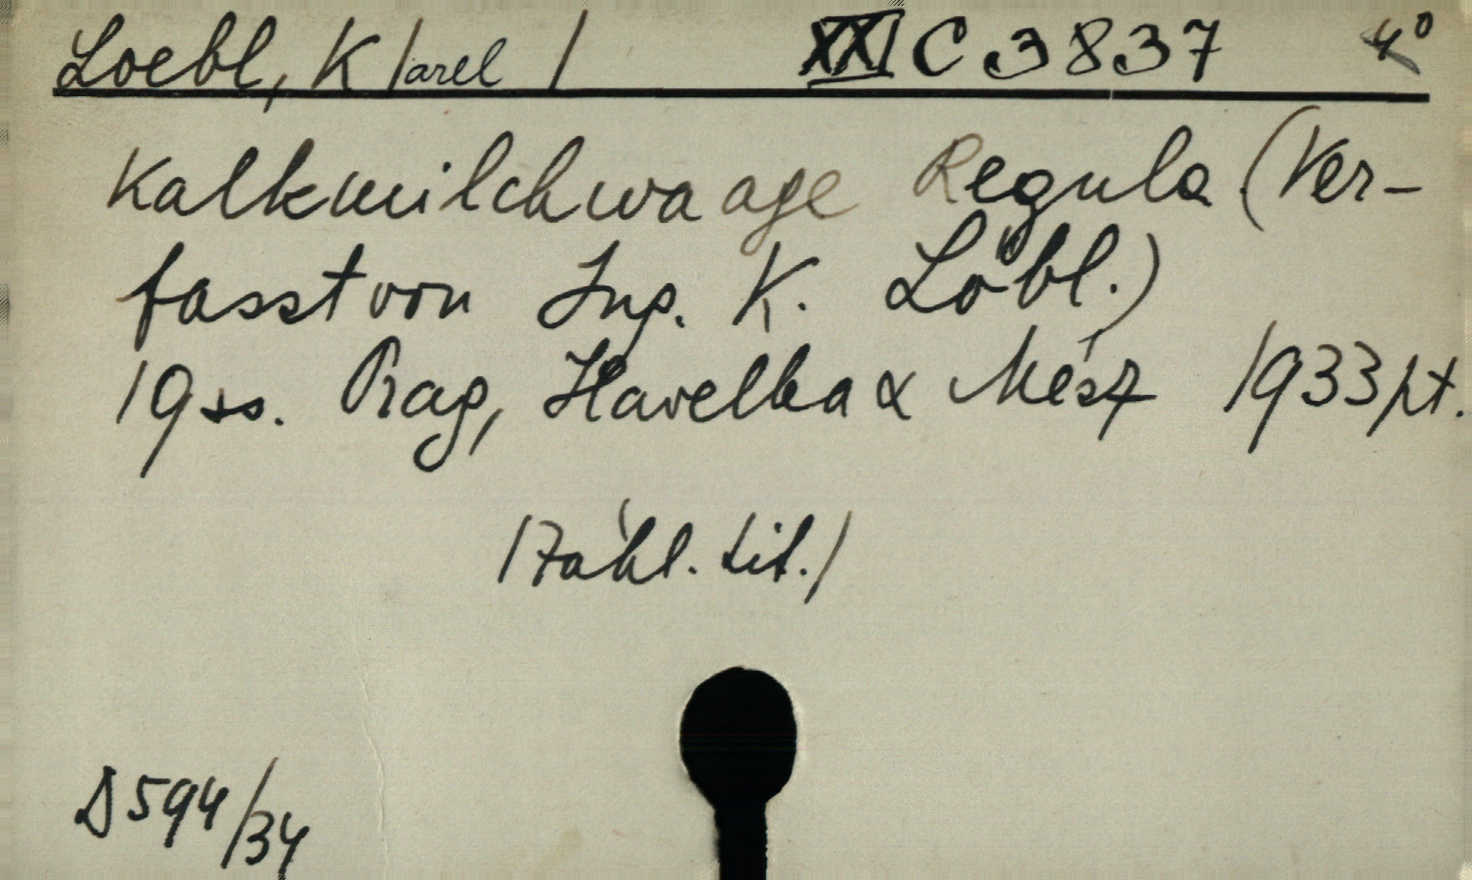 Loebl, K/arel/ XXI C 3837 4°
Kalkmilchwaage Regula. (Ver-
fasst von Ing. K. Löbl.)
19 ss. Prag, Havelka & Mész 1933 pt.
/Záhl. tit./
D 594/34